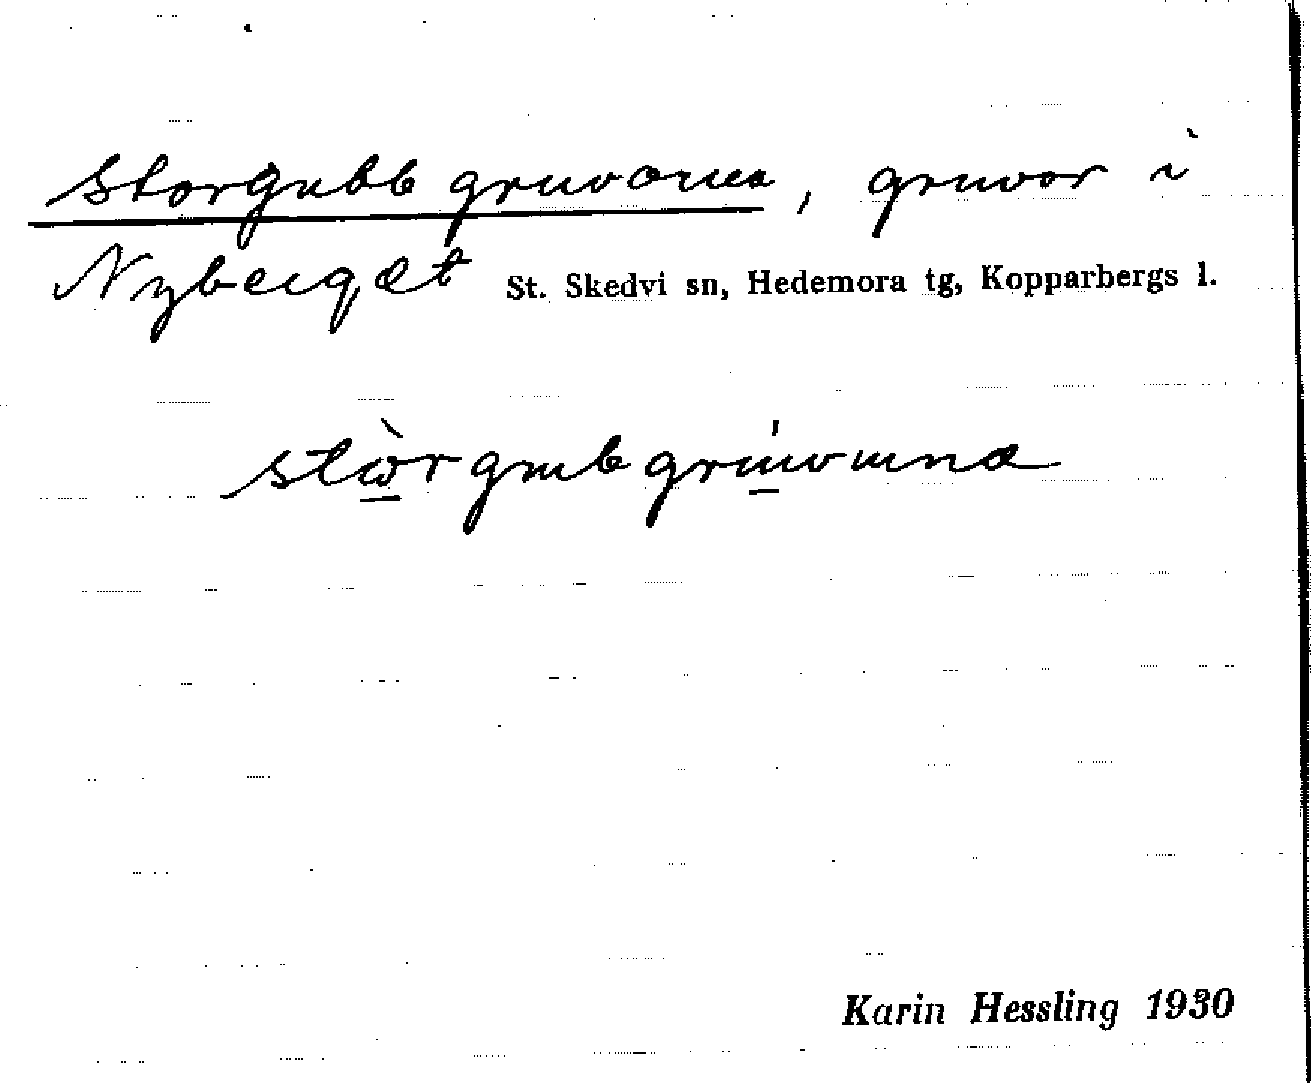 Storgubb gruvorna, gruvor i
Nyberget St. Skedvi sn, Hedemora tg, Kopparbergs l.
Karin Hessling 1930